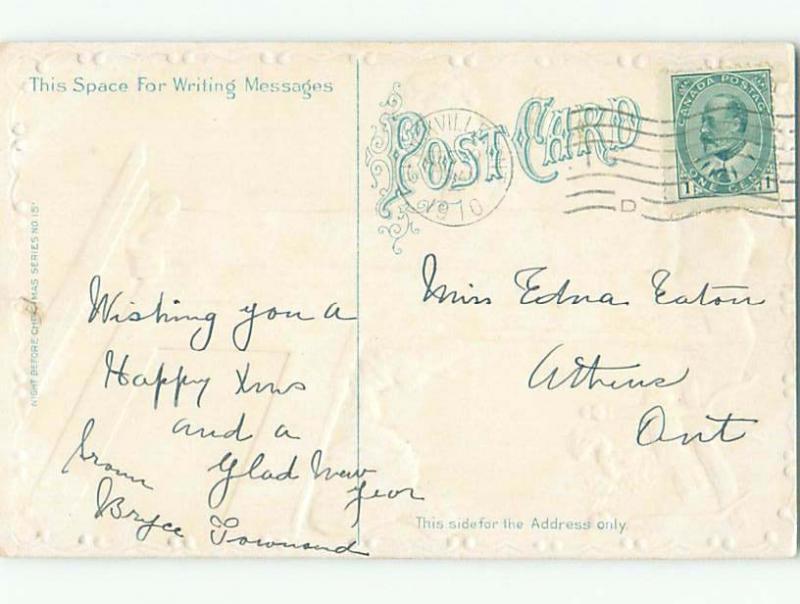 This Space For Writing Messages
POST CARD
CANADA POSTAGE
1 ONE CENT 1
1910
D
NIGHT BEFORE CHRISTMAS SERIES NO 15
Wishing you a
Happy Xmas
and a
Glad New
Year
from
Bryce Townsend
Miss Edna Eaton
Athens
Ont
This side for the Address only.